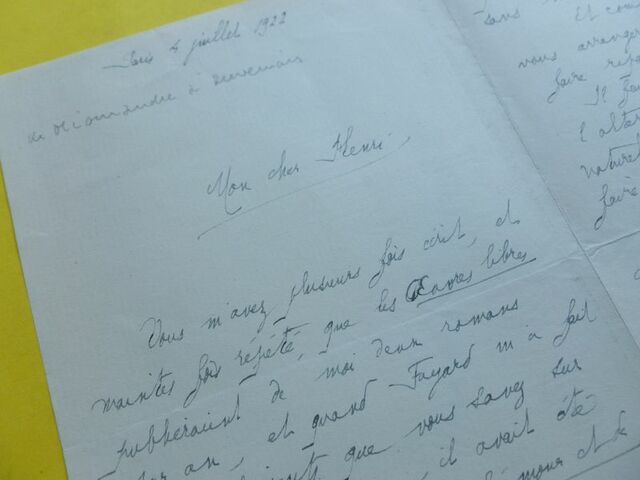 Paris 4 juillet 1922
de Miomandre à Duvernois
Mon cher Henri,
Vous m'avez plusieurs fois écrit, et
maintes fois répété, que les Œuvres libres
publieraient de moi deux romans
par an, et quand Fayard m'a fait
que vous savez sur
il avait été
et de
sans
Et com
vous arranger
faire
Il fau
l'alter
naturel
faire